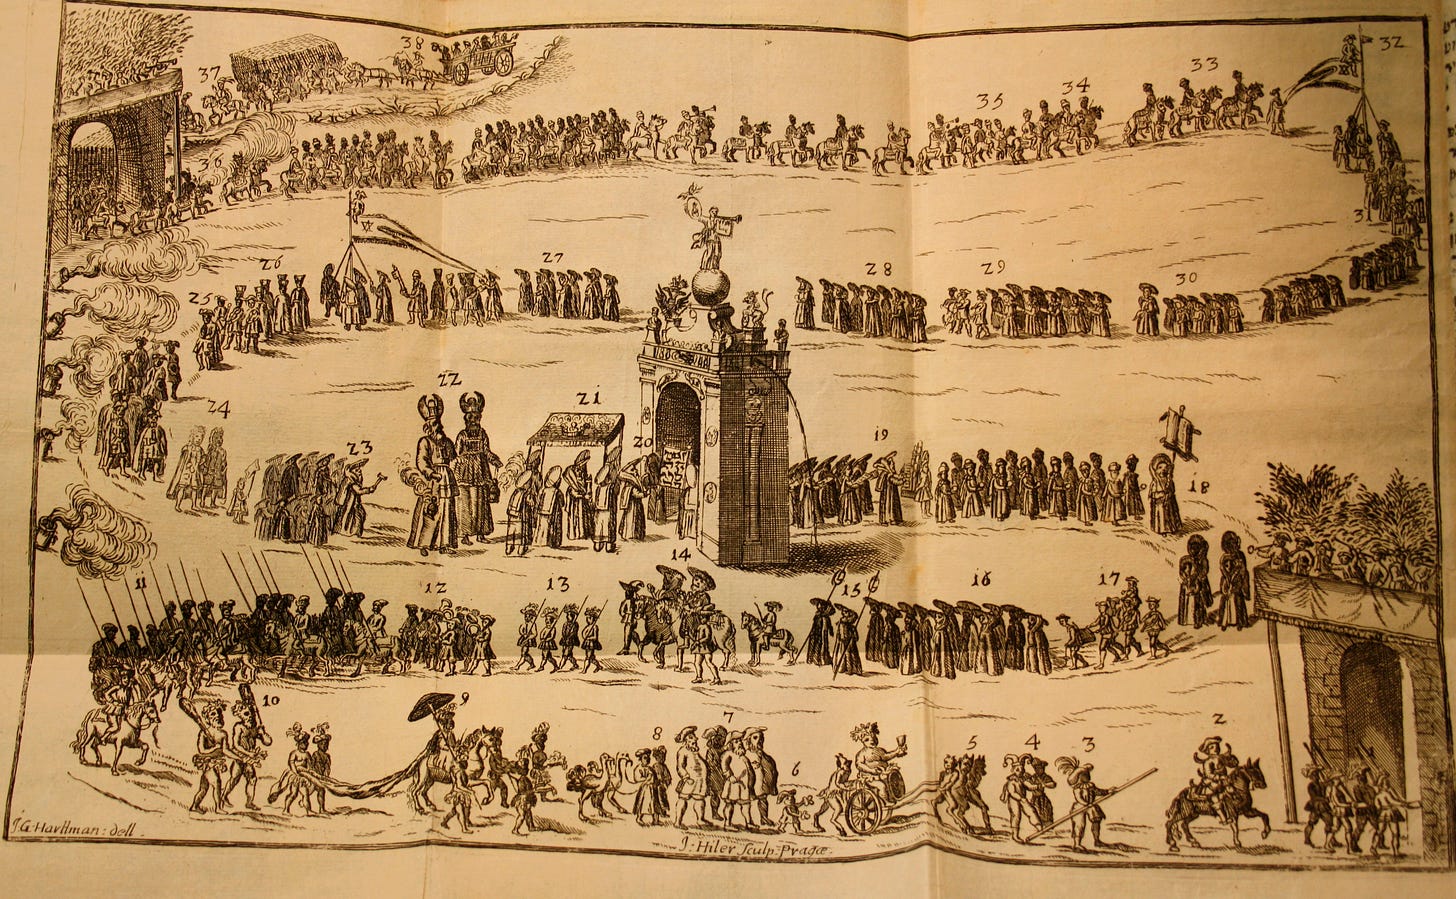 37
38
35
34
33
32
36
25
26
27
28
29
30
24
23
22
21
20
19
18
11
12
13
14
15
16
17
10
9
8
7
6
5
4
3
2
J.G. Harttman: dell.
J: Hiler Sculp: Pragæ.